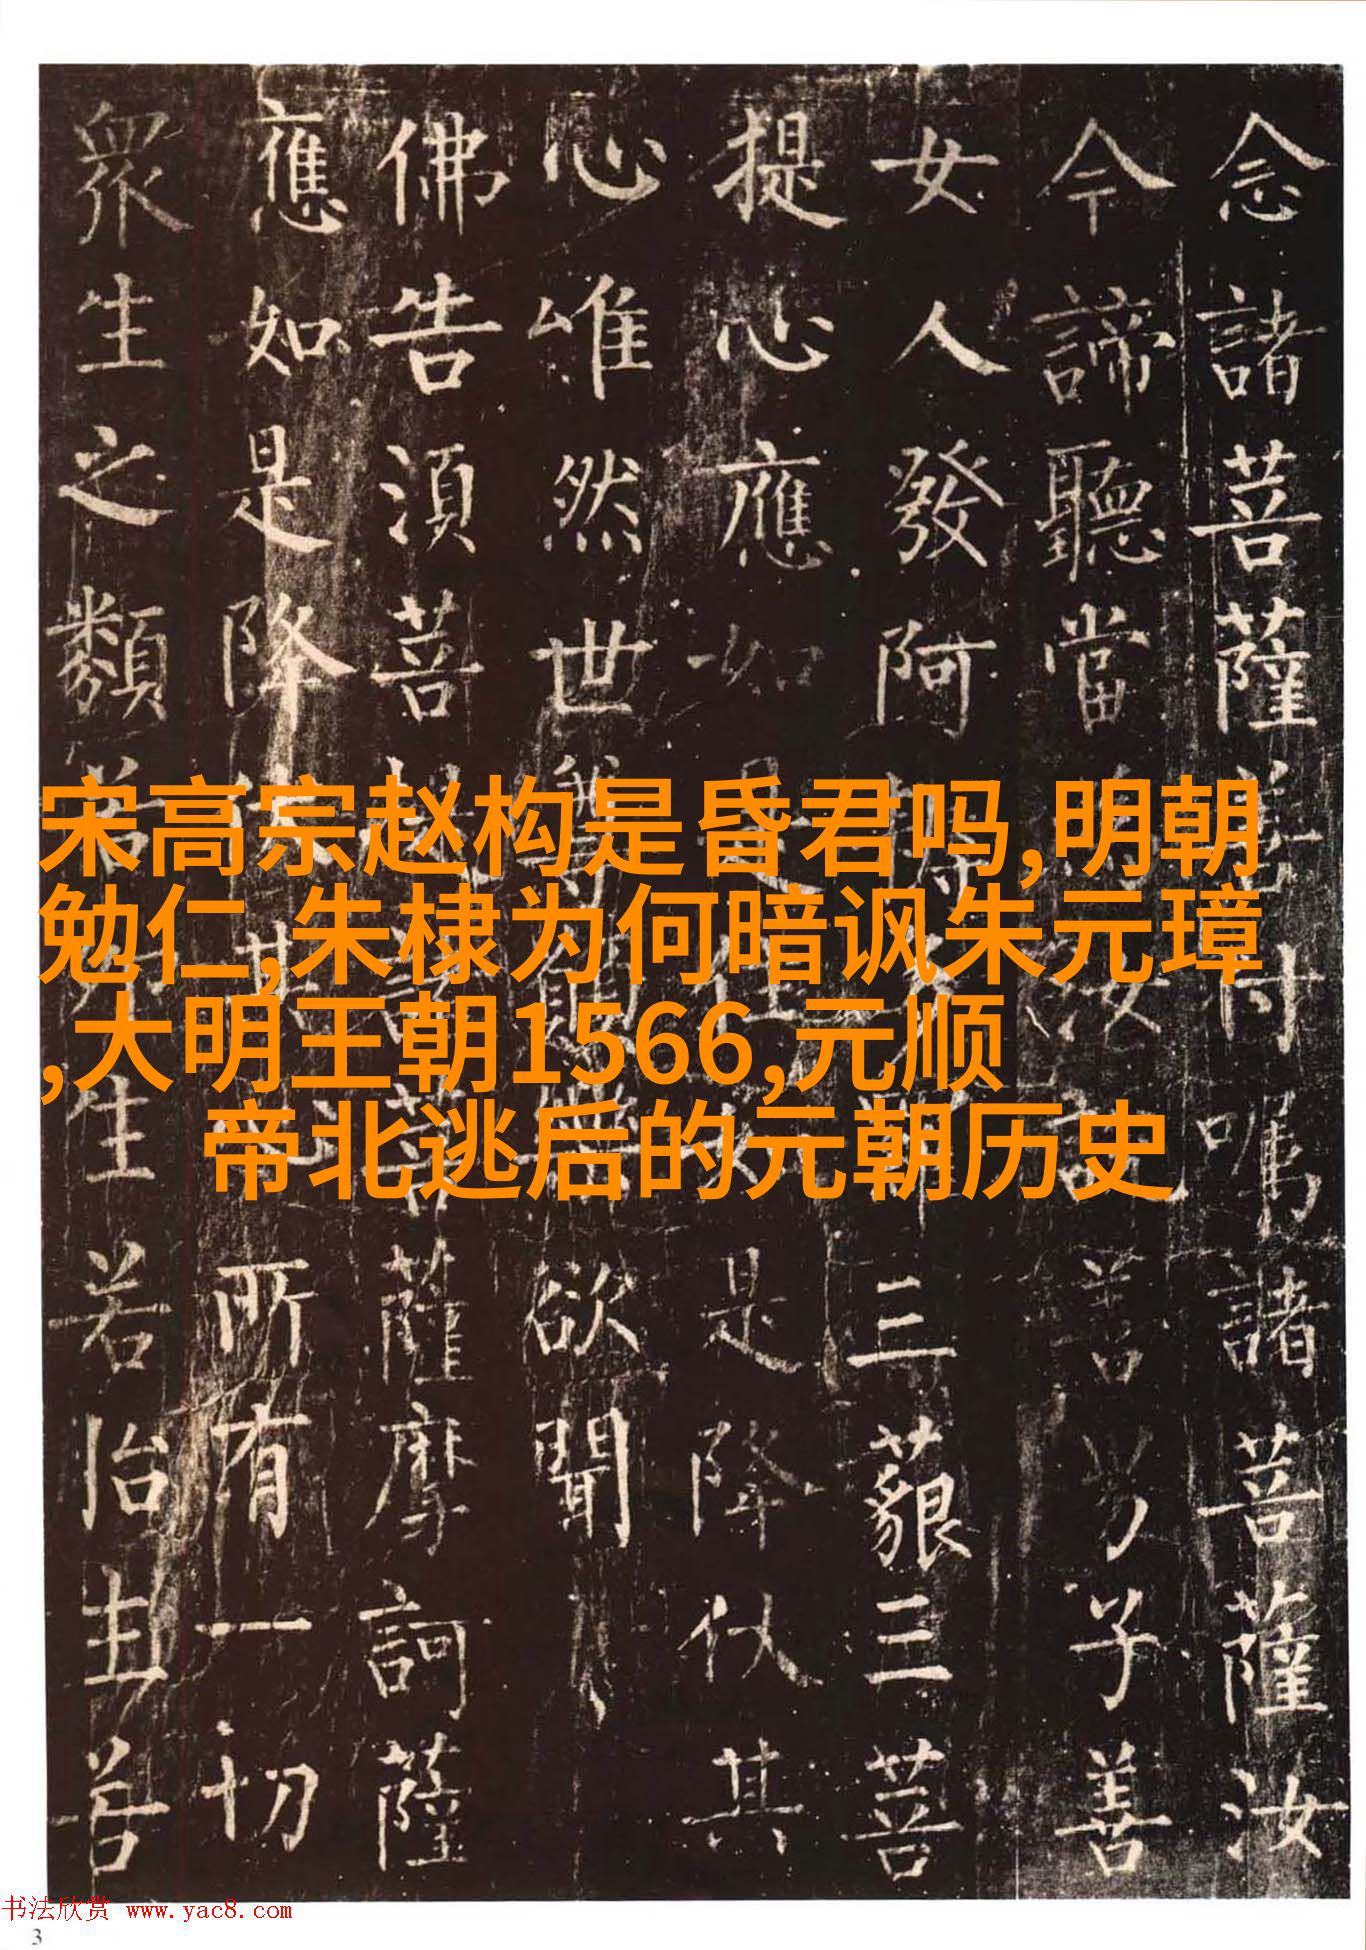 念諸菩薩付嘱諸菩薩汝
今諦聽當汝善男子善
女人發阿三藐三菩
提心應如是降伏其
心唯然世尊欲聞
佛告須菩薩摩訶薩
應如是降其所有一切
衆生之類若生若胎生若
宋高宗赵构是昏君吗,明朝
勉仁,朱棣为何暗讽朱元璋
,大明王朝1566,元顺
帝北逃后的元朝历史
书法欣赏 www.yac8.com
3